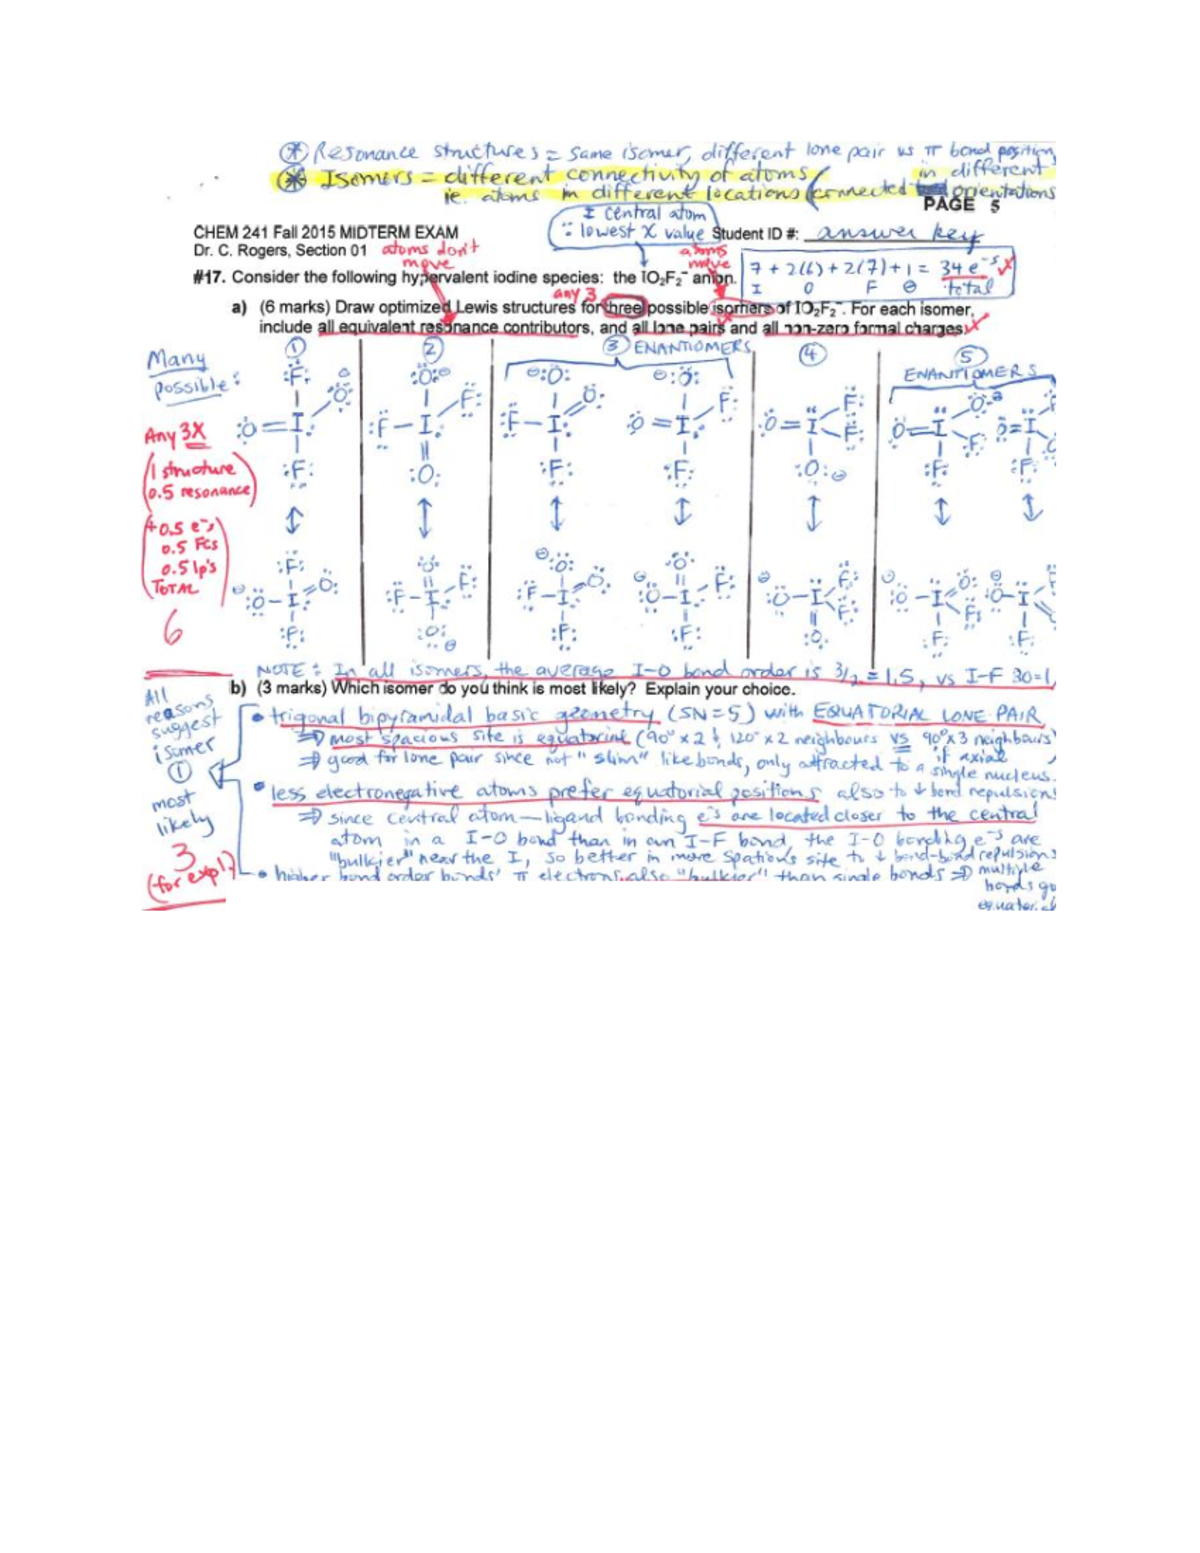 * Resonance structures = same isomer, different lone pair vs π bond position
* Isomers = different connectivity of atoms
ie. atoms in different locations (connected in different orientations
PAGE 5
I central atom
∵ lowest X value
CHEM 241 Fall 2015 MIDTERM EXAM
Student ID #: answer key
Dr. C. Rogers, Section 01
atoms don't move
atoms move
#17. Consider the following hypervalent iodine species: the IO₂F₂⁻ anion.
7 + 2(6) + 2(7) + 1 = 34 e⁻s
I O F ⊖ total
any 3
a) (6 marks) Draw optimized Lewis structures for three possible isomers of IO₂F₂⁻. For each isomer,
include all equivalent resonance contributors, and all lone pairs and all non-zero formal charges.
Many possible:
① ② ③ ENANTIOMERS ④ ⑤ ENANTIOMERS
Any 3X
(1 structure
0.5 resonance)
+0.5 e⁻s
0.5 FCs
0.5 lp's
TOTAL
6
NOTE: In all isomers, the average I-O bond order is 3/2 = 1.5, vs I-F BO=1
b) (3 marks) Which isomer do you think is most likely? Explain your choice.
All reasons suggest isomer ① most likely
3
(for expl)
• trigonal bipyramidal basic geometry (SN=5) with EQUATORIAL LONE PAIR
⇒ most spacious site is equatorial (90° x 2 & 120° x 2 neighbours vs 90° x 3 neighbours if axial)
⇒ good for lone pair since not "slim" like bonds, only attracted to a single nucleus.
• less electronegative atoms prefer equatorial positions also to ↓ bond repulsions
⇒ since central atom–ligand bonding e⁻s are located closer to the central
atom in a I-O bond than in an I-F bond, the I-O bonding e⁻s are
"bulkier" near the I, so better in more spatious site to ↓ bond-bond repulsions
• higher bond order bonds' π electrons also "bulkier" than single bonds ⇒ multiple
bonds go